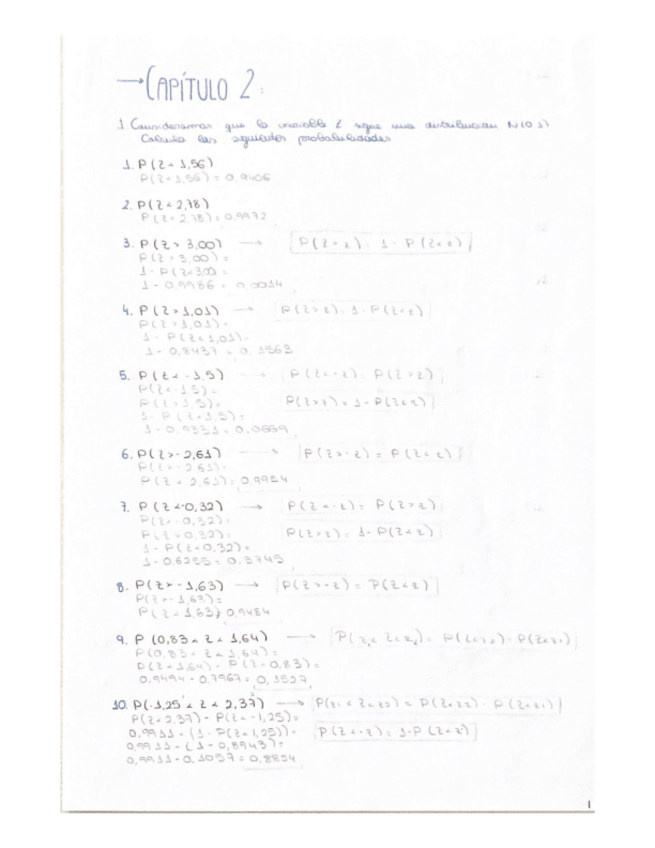 → CAPÍTULO 2:
1 Consideramos que la variable Z sigue una distribución N(0 1)
Calcula las siguientes probabilidades
1. P(Z < 1,56)
P(Z < 1,56) = 0,9406
2. P(Z < 2,78)
P(Z < 2,78) = 0,9972
3. P(Z > 3,00) → P(Z > z) = 1 - P(Z < z)
P(Z > 3,00) =
1 - P(Z < 3,00 =
1 - 0,9986 = 0,0014
4. P(Z > 1,01) → P(Z > z) = 1 - P(Z < z)
P(Z > 1,01) =
1 - P(Z < 1,01) =
1 - 0,8437 = 0,1563
5. P(Z < -1,5) → P(Z < -z) = P(Z > z)
P(Z < -1,5) =
P(Z > 1,5) = P(Z > z) = 1 - P(Z < z)
1 - P(Z < 1,5) =
1 - 0,9331 = 0,0669
6. P(Z > -2,61) → P(Z > -z) = P(Z < z)
P(Z > -2,61) =
P(Z < 2,61) = 0,9954
7. P(Z < -0,32) → P(Z < -z) = P(Z > z)
P(Z < -0,32) =
P(Z > 0,32) = P(Z > z) = 1 - P(Z < z)
1 - P(Z < 0,32) =
1 - 0,6255 = 0,3745
8. P(Z > -1,63) → P(Z > -z) = P(Z < z)
P(Z > -1,63) =
P(Z < 1,63) 0,9484
9. P(0,83 < Z < 1,64) → P(z1 < Z < z2) = P(Z < z2) - P(Z < z1)
P(0,83 < Z < 1,64) =
P(Z < 1,64) - P(Z < 0,83) =
0,9494 - 0,7967 = 0,1527
10. P(-1,25 < Z < 2,37) → P(z1 < Z < z2) = P(Z < z2) - P(Z < z1)
P(Z < 2,37) - P(Z < -1,25) =
0,9911 - (1 - P(Z < 1,25)) = P(Z < -z) = 1 - P(Z < z)
0,9911 - (1 - 0,8943) =
0,9911 - 0,1057 = 0,8854
1